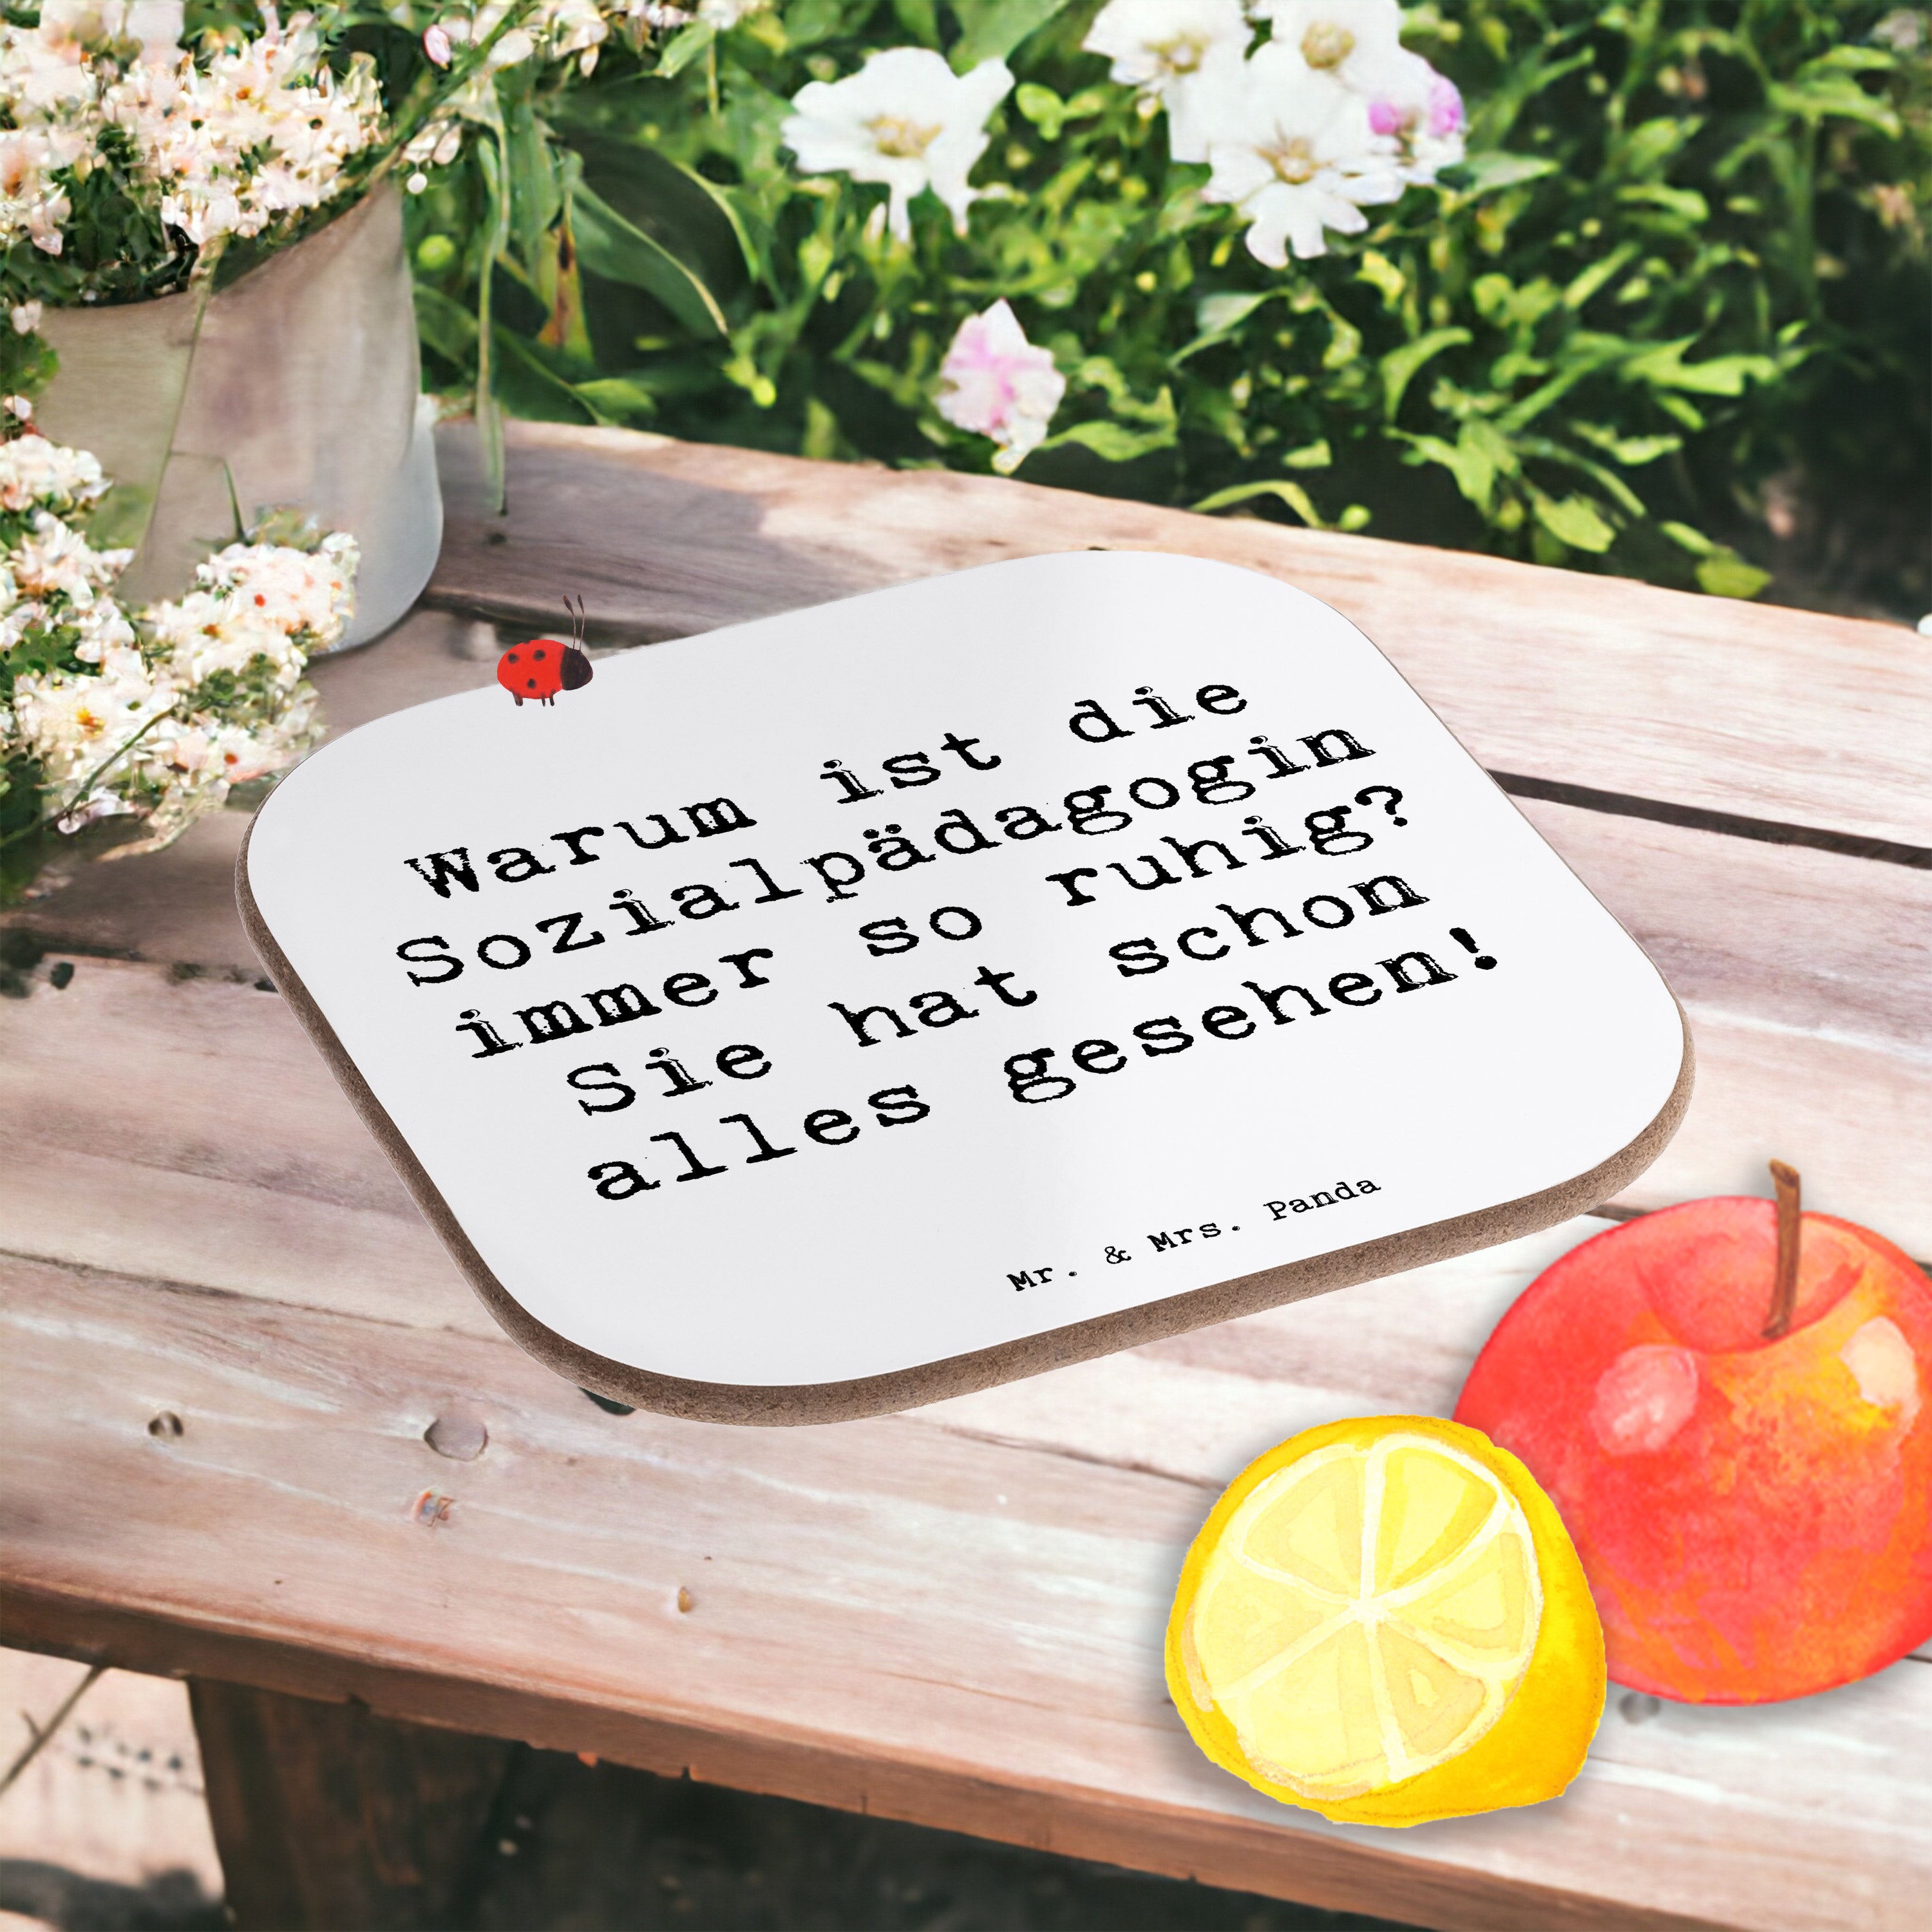 Warum ist die
Sozialpädagogin
immer so ruhig?
Sie hat schon
alles gesehen!
Mr. & Mrs. Panda